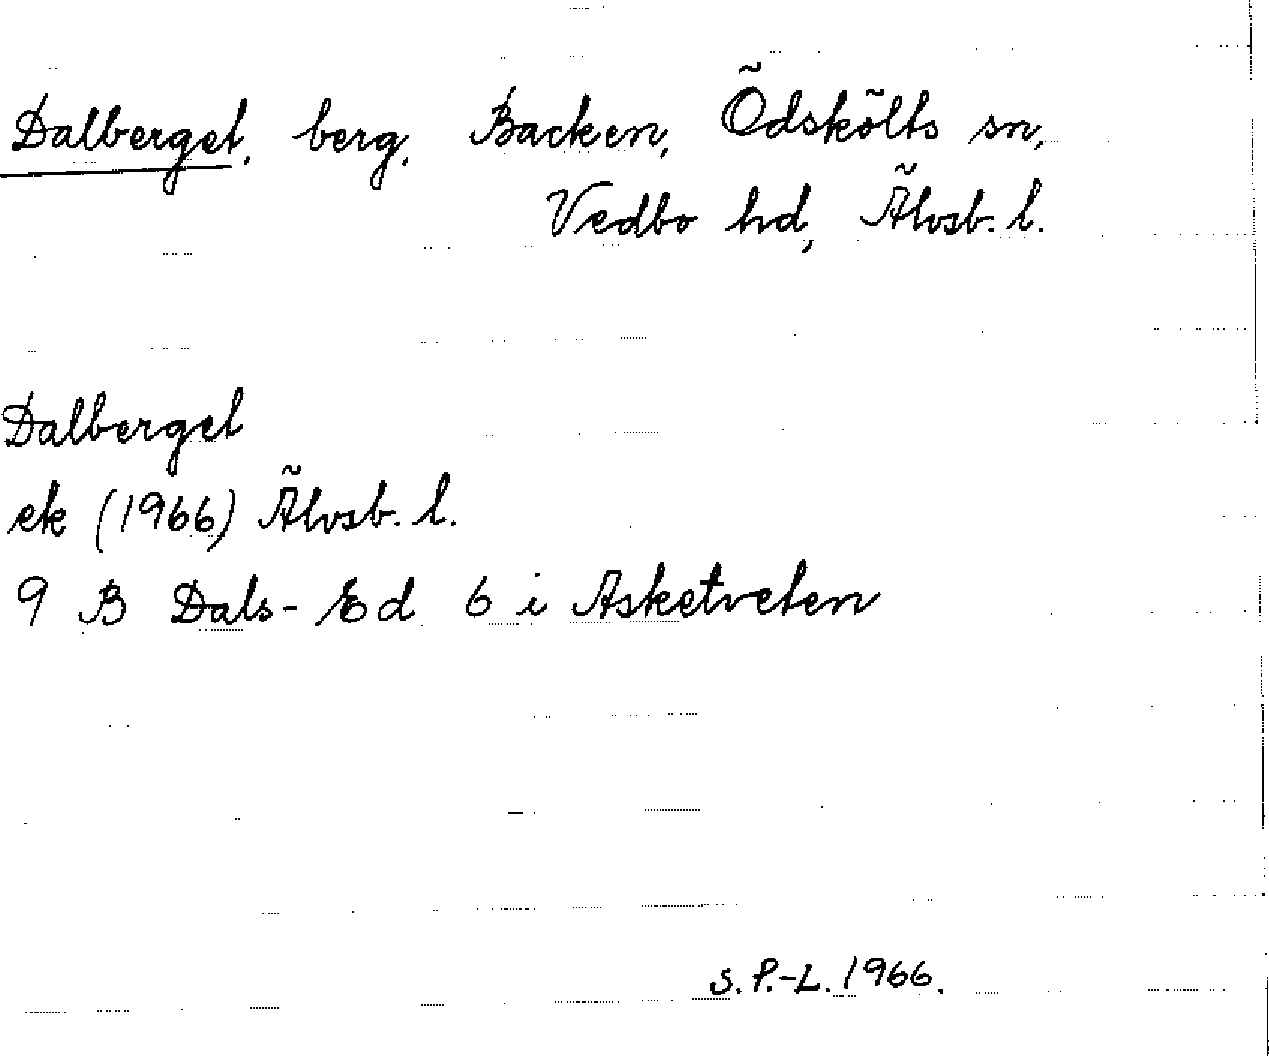 Dalberget, berg, Backen, Ödskölts sn,
Vedbo hd, Älvsb. l.
Dalberget
ek (1966) Älvsb. l.
9 B Dals-Ed 6 i Asketveten
S. P.-L. 1966.